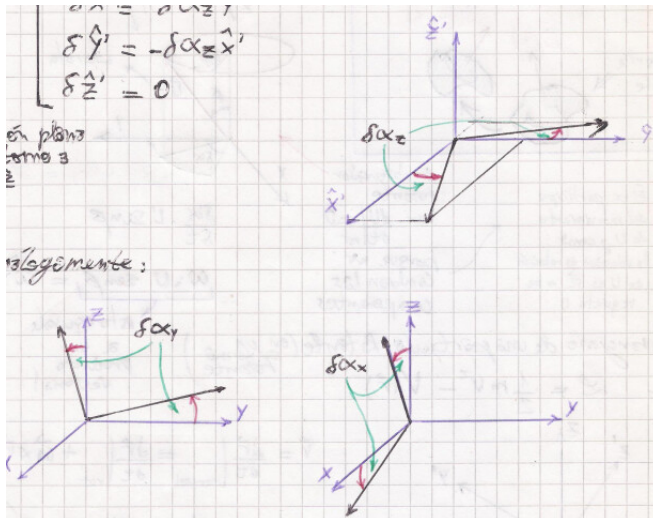 δŶ' = -δα_z x̂'
δẑ' = 0
en plano
ẑ'
δα_z
ŷ
x̂'
análogamente:
z
δα_y
y
z
δα_x
y
x